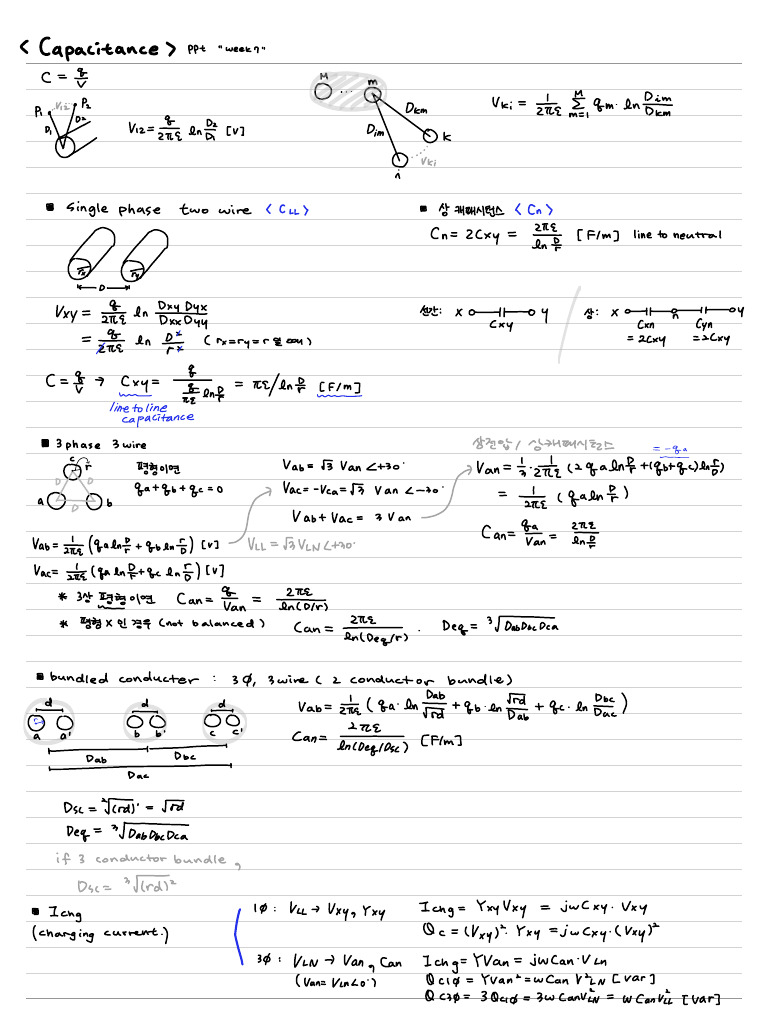 < Capacitance > ppt "week7"
C = q/V
P1 V12 P2
D1 D2
V12 = q/2πε ln D2/D1 [V]
M ... m
Dkm
Dim
k
Vki
i
Vki = 1/2πε Σ(m=1→M) qm · ln Dim/Dkm
▪ Single phase two wire < CLL >
rx ry
D
Vxy = q/2πε ln DxyDyx/DxxDyy
= q/2πε ln D²/r² ( rx=ry=r 일 때 )
C = q/V → Cxy = q/(q/πε ln D/r) = πε/ln D/r [F/m]
line to line
capacitance
▪ 상 캐패시턴스 < Cn >
Cn = 2Cxy = 2πε/ln D/r [F/m] line to neutral
선간: x y
Cxy
상: x n y
Cxn Cyn
= 2Cxy = 2Cxy
▪ 3 phase 3 wire
c r
D D
a D b
평형이면
qa+qb+qc = 0
Vab = 1/2πε (qa ln D/r + qb ln r/D) [V]
Vac = 1/2πε (qa ln D/r + qc ln r/D) [V]
Vab = √3 Van ∠+30°
Vac = -Vca = √3 Van ∠-30°
Vab + Vac = 3 Van
VLL = √3 VLN ∠+30°
상전압 / 상캐패시턴스
= -qa
Van = 1/3 · 1/2πε (2qa ln D/r + (qb+qc) ln r/D)
= 1/2πε (qa ln D/r)
Can = qa/Van = 2πε/ln D/r
* 3상 평형이면 Can = q/Van = 2πε/ln(D/r)
* 평형 X 인 경우 (not balanced) Can = 2πε/ln(Deq/r) . Deq = ³√DabDbcDca
▪ bundled conducter : 3Ø, 3wire ( 2 conductor bundle)
d d d
a a' b b' c c'
Dab Dbc
Dac
Vab = 1/2πε ( qa · ln Dab/√rd + qb · ln √rd/Dab + qc · ln Dbc/Dac )
Can = 2πε/ln(Deq/Dsc) [F/m]
Dsc = ²√(rd)¹ = √rd
Deq = ³√DabDbcDca
if 3 conductor bundle,
Dsc = ³√(rd)²
▪ Ichg
(charging current.)
1Ø : VLL → Vxy, Yxy
Ichg = YxyVxy = jwCxy · Vxy
Qc = (Vxy)² · Yxy = jwCxy · (Vxy)²
3Ø : VLN → Van, Can
(Van = VLN∠0°)
Ichg = YVan = jwCan · VLN
Qc1Ø = YVan² = wCan V²LN [var]
Qc3Ø = 3Qc1Ø = 3wCanV²LN = wCanV²LL [var]